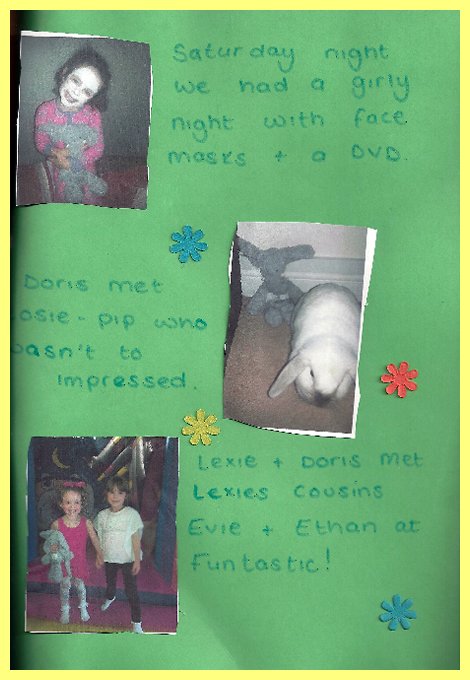 Saturday night
we had a girly
night with face
masks + a DVD.
Doris met
osie-pip who
asn't to
impressed.
Lexie + Doris met
Lexies cousins
Evie + Ethan at
Funtastic!